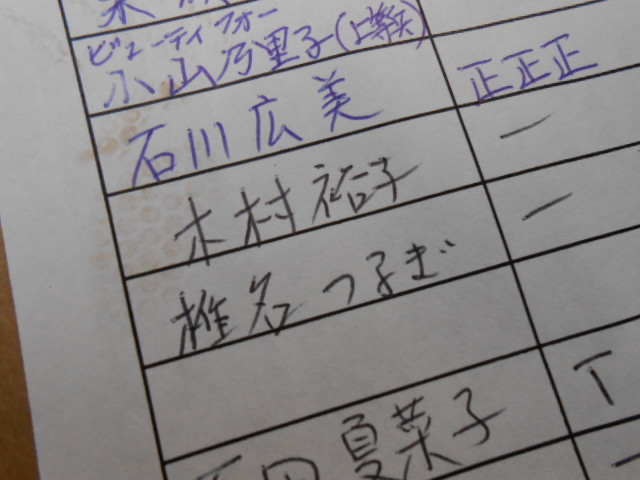 ビューティフォー
小山乃里子(上等兵)
石川広美 正正正
木村祐子 一
椎名つるぎ 一
田夏菜子 丅